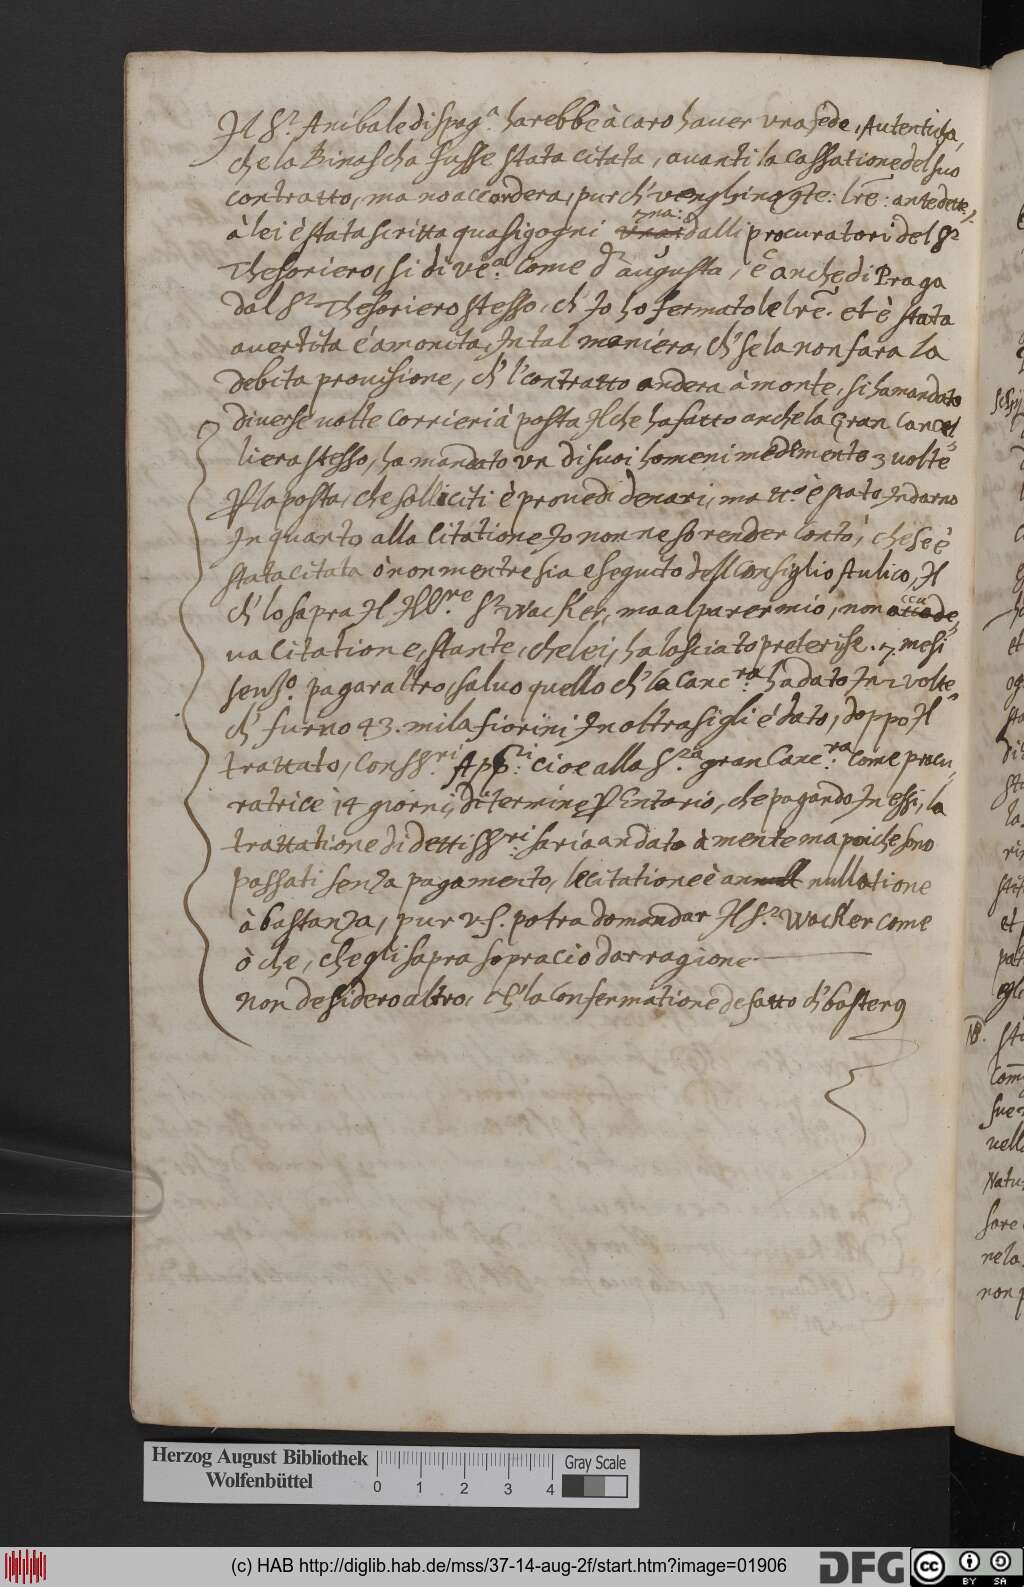 Il Sr. Anibale di spag.a harebbe à caro haver una fede, Autenticha,
che la Binascha fusse stata citata, avanti la cassatione del suo
contratto, ma no accordera, pur ch' venghino lre: antedette,
à lei è stata scritta quasi gogni vna: dalli procuratori del Sr
Thesoriero, si di ve.a come d' augusta, è anche di Praga
dal Sr Thesoriero stesso, ch' Io ho fermato le lre. et è stata
avertita é amonita, In tal maniera, ch' se la non fara la
debita provisione, ch' l' contratto andera à monte, si ha mandato
diverse volte Corrieri à posta Il che ha fatto anche la Gran Cancel=
liera stesso, ha mandato un di suoi homeni medemento 3 volte
P la posta, che solliciti è provedi denari, ma tto è stato Indarno
In quanto alla Citatione Io non ne so render Conto, che se è
stata citata ò non mentre sia eseguito dell Consiglio Aulico, Il
ch' lo sapra Il Ill.re Sr Wacker, ma al parer mio, non accade,
va Citatione, stante, che lei, ha lasciato preterise .7. mesi
senz.o pagar altro, salvo quello ch' la Canc.ra hà dato In 2 volte
ch' furno 43. mila fiorini In oltra sigli é dato, doppo Il
trattato, Con SS.ri App.ti cioe alla S.ra gran Canc.ra come procu,
ratrice 14 giorni, di termine P Entario, che pagando In essi, la
trattatione di detti SS.ri saria andato à mente ma poiche sono
passati senza pagamento, le citatione è anull nullatione
à bastanza, pur v.s. potra domandar Il Sr. Wacker come
ò che, che gli sapra sopra cio dar ragione
non desidero altro, ch' la Confermatione de fatto ch' baster
Herzog August Bibliothek
Wolfenbüttel
0 1 2 3 4
Gray Scale
(c) HAB http://diglib.hab.de/mss/37-14-aug-2f/start.htm?image=01906
DFG
cc BY SA